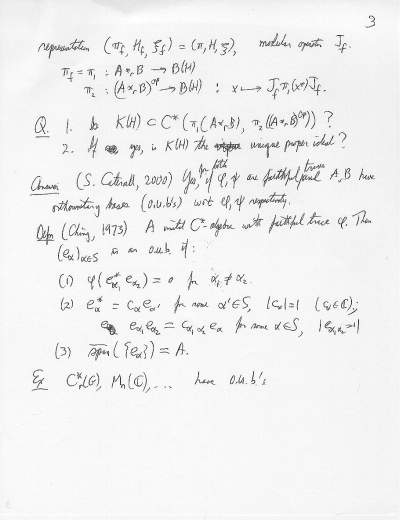 3
representation (π_f, H_f, ξ_f) = (π, H, ξ), modular operator J_f.
π_f = π_1 : A *_r B → B(H)
π_2 : (A *_r B)^op → B(H) : x ↦ J_f π_1(x*) J_f.
Q. 1. Is K(H) ⊂ C*(π_1(A *_r B), π_2((A *_r B)^op)) ?
2. If yes, is K(H) the unique proper ideal ?
Answer (S. Catterall, 2000) Yes, for both if φ, ψ are faithful traces and A, B have
orthounitary bases (o.u.b's) w.r.t φ, ψ respectively.
Defn (Ching, 1973) A unital C*-algebra with faithful trace φ. Then
(e_α)_{α∈S} is an o.u.b. if :
(1) φ(e*_{α_1} e_{α_2}) = 0 for α_1 ≠ α_2.
(2) e*_α = c_α e_{α'} for some α' ∈ S, |c_α| = 1 (c_α ∈ ℂ);
e_{α_1} e_{α_2} = c_{α_1 α_2} e_α for some α ∈ S, |c_{α_1 α_2}| = 1
(3) span({e_α}) = A.
Ex C*_r(G), M_n(ℂ), ... have o.u.b's